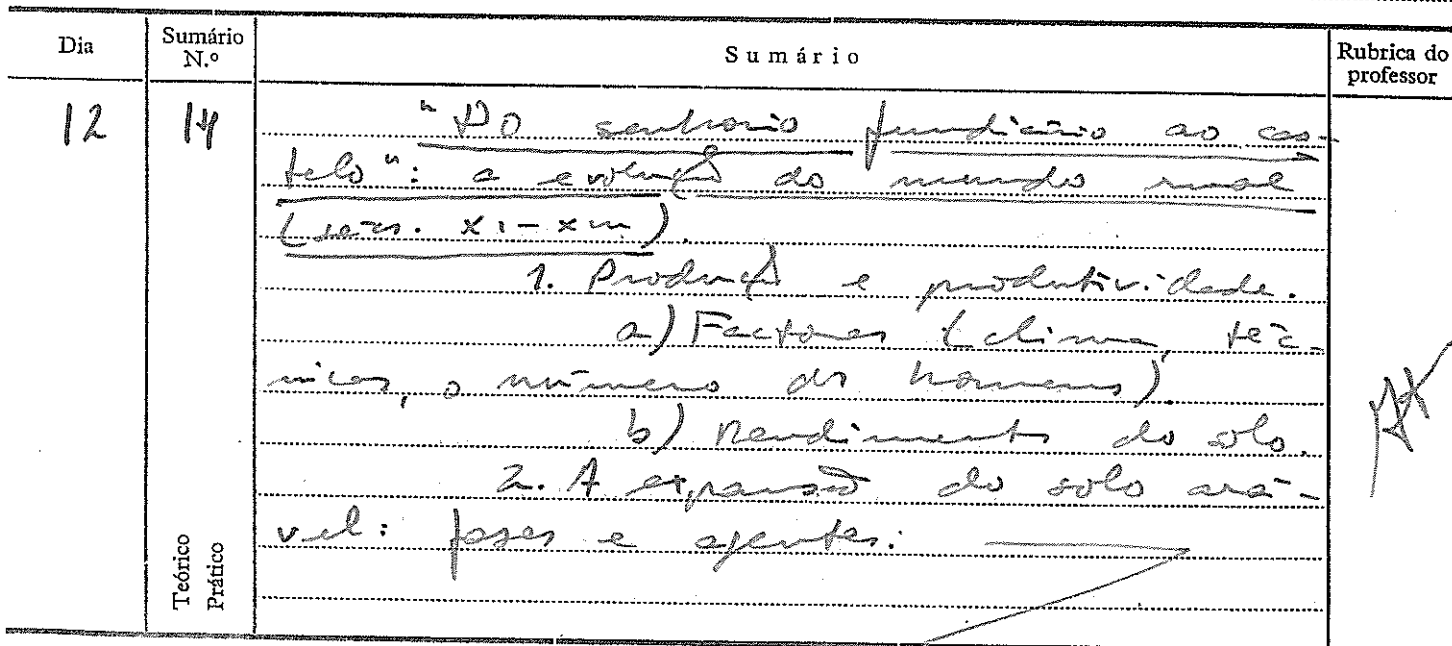 Dia
Sumário N.º
Sumário
Rubrica do professor
12
14
"Do senhorio fundiário ao cas-
telo": a evolução do mundo rural
(sécs. XI-XIII).
1. Produção e produtividade.
a) Factores (clima, téc-
nicas, o número dos homens)
b) Rendimento do solo.
2. A expansão do solo ará-
vel: fases e agentes.
Teórico
Prático